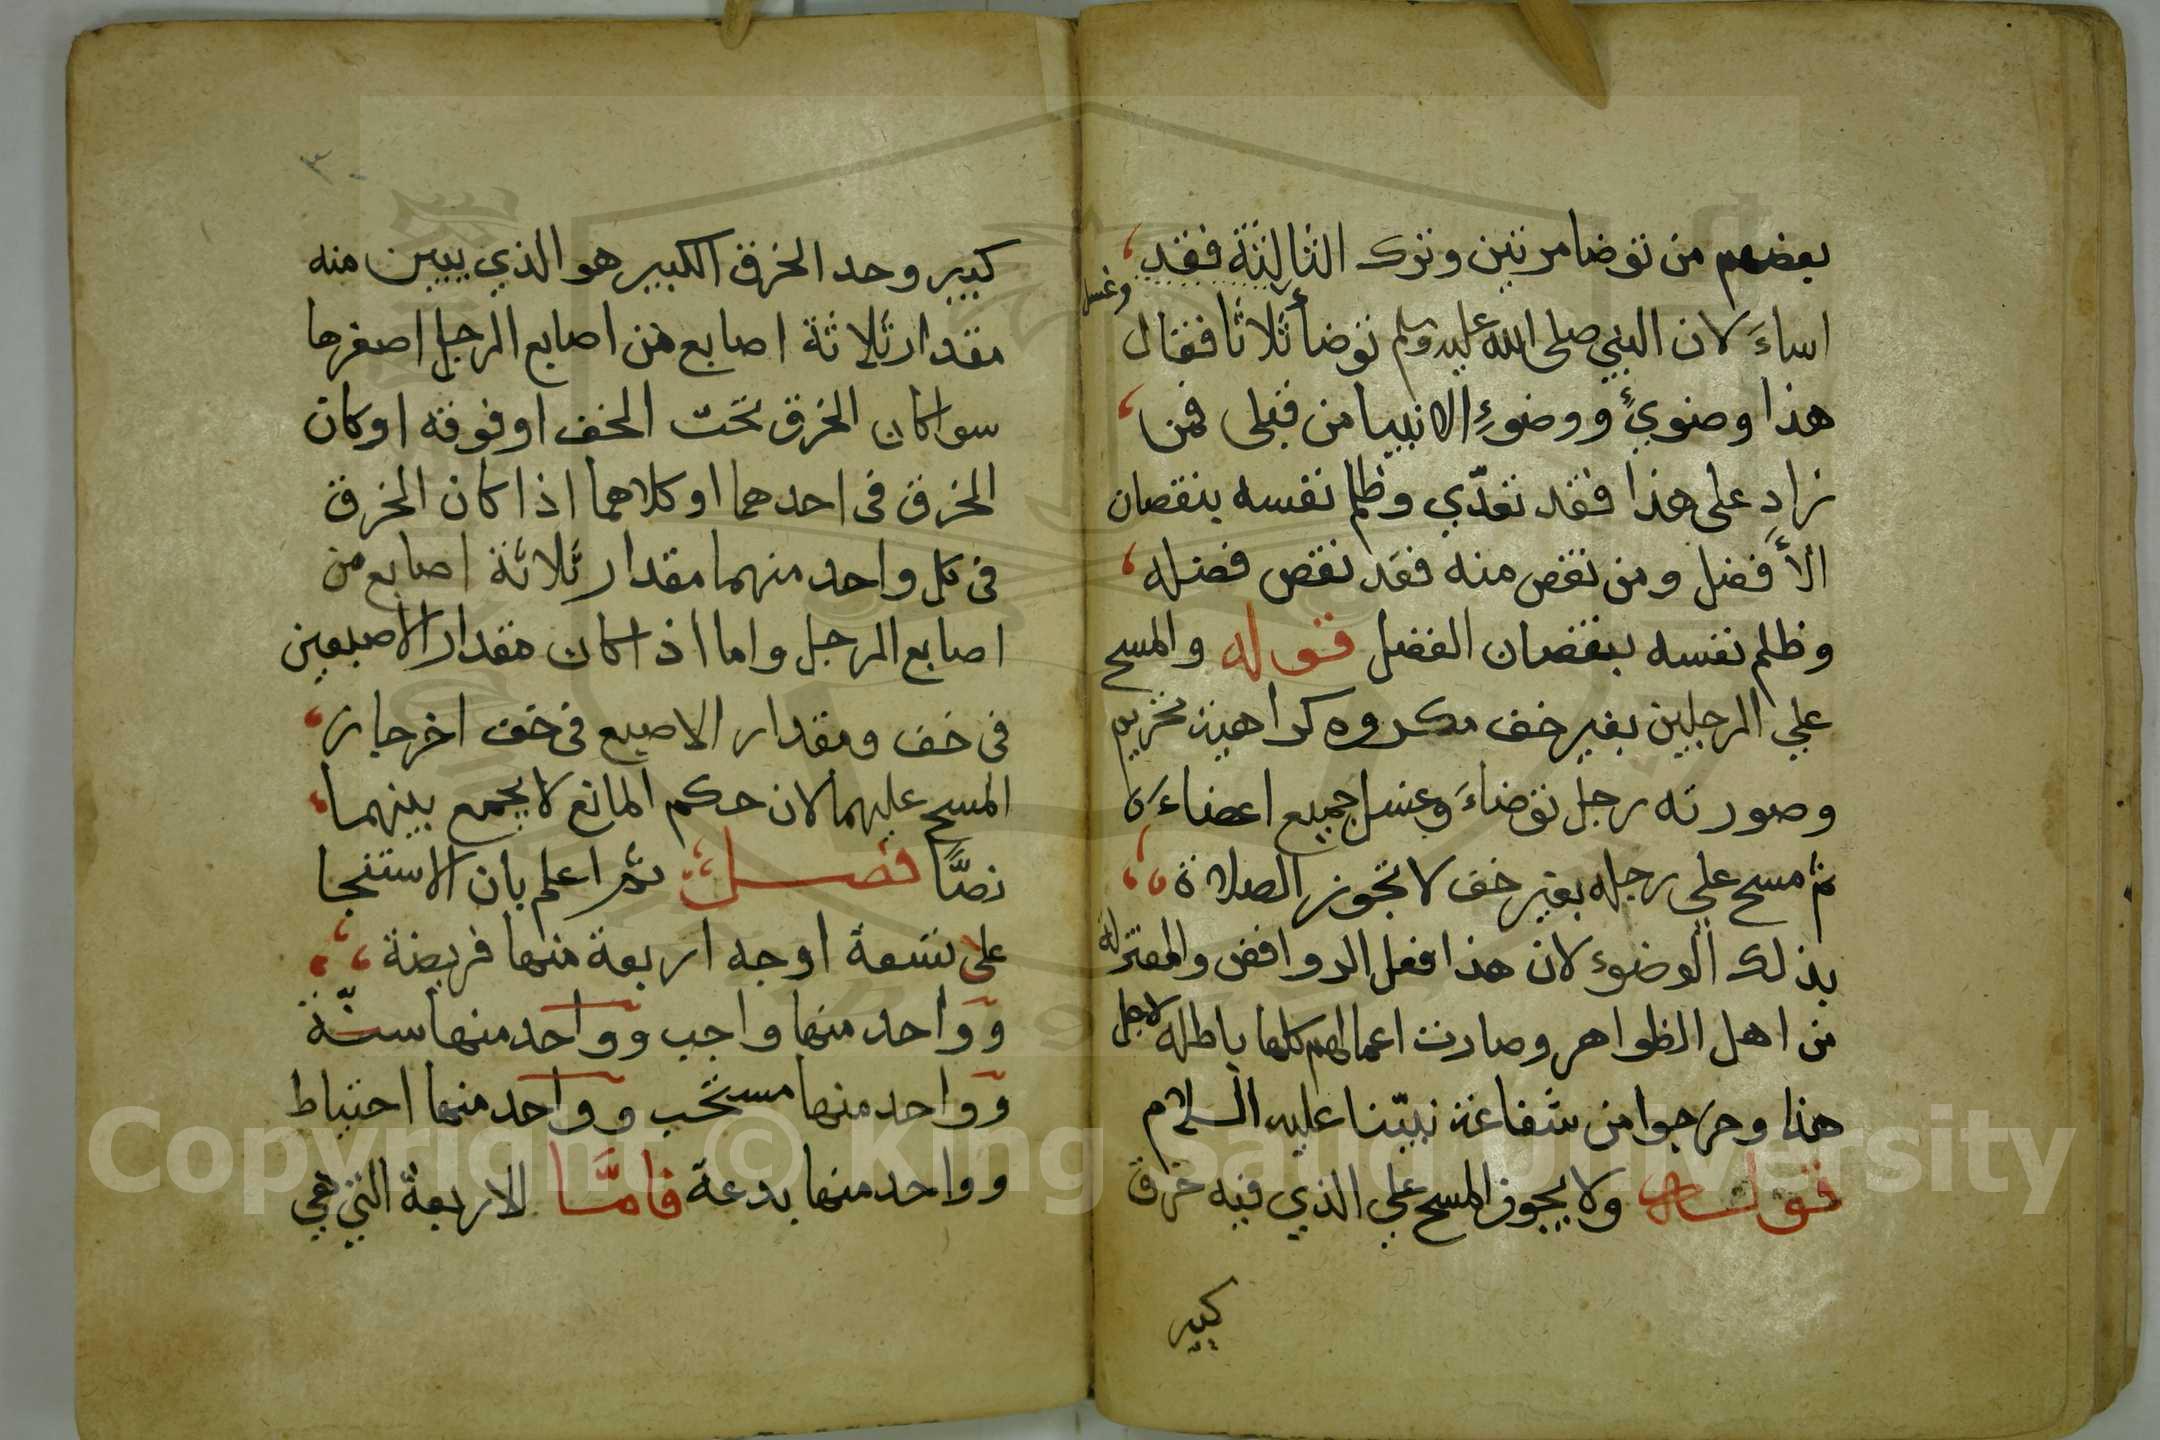 بعضهم من توضا مرتين وترك الثالثة فقد
وغسل
اساءَ لان النبي صلى الله عليه وسلم توضأ ثلاثا فقال
هذا وضوئ ووضوءِ الانبيا من قبلى فمن
زاد على هذا فقد تعدّي وظلم نفسه بنقصان
الأفضل ومن نقص منه فقد نقص فضله
وظلم نفسه بنقضان الفضل قوله والمسح
علي الرجلين بغير خف مكروه كراهية تحريم
وصورته رجل توضاءَ وغسل جميع اعضاءَه
ثم مسح علي رجله بغير خف لا تجوز الصلاة
بذلك الوضوء لان هذا فعل الروافض والمعتزلة
من اهل الظواهر وصارت اعمالهم كلها باطله لاجل
هذا وخرجوا من شفاعة نبيّنا عليه السلام
قوله ولا يجوز المسح علي الذي فيه خرق
كبير
٣٠
كبير وحد الخرق الكبير هو الذي يبين منه
مقدار ثلاثة اصابع من اصابع الرجل اصغرها
سوا كان الخرق تحت الخف او فوقه او كان
الخرق فى احدهما او كلاهما اذا كان الخرق
فى كل واحد منهما مقدار ثلاثة اصابع من
اصابع الرجل واما اذا كان مقدار الاصبعين
فى خف ومقدار الاصبع فى خف اخر جاز
المسح عليهما لان حكم المانع لا يجمع بينهما
نصًّا فصل ثم اعلم بان الاستنجا
على تسعة اوجه اربعة منها فريضة
وواحد منها واجب وواحد منها سنّة
وواحد منها مستحب وواحد منها احتياط
وواحد منها بدعة فامَّا الاربعة التي هي